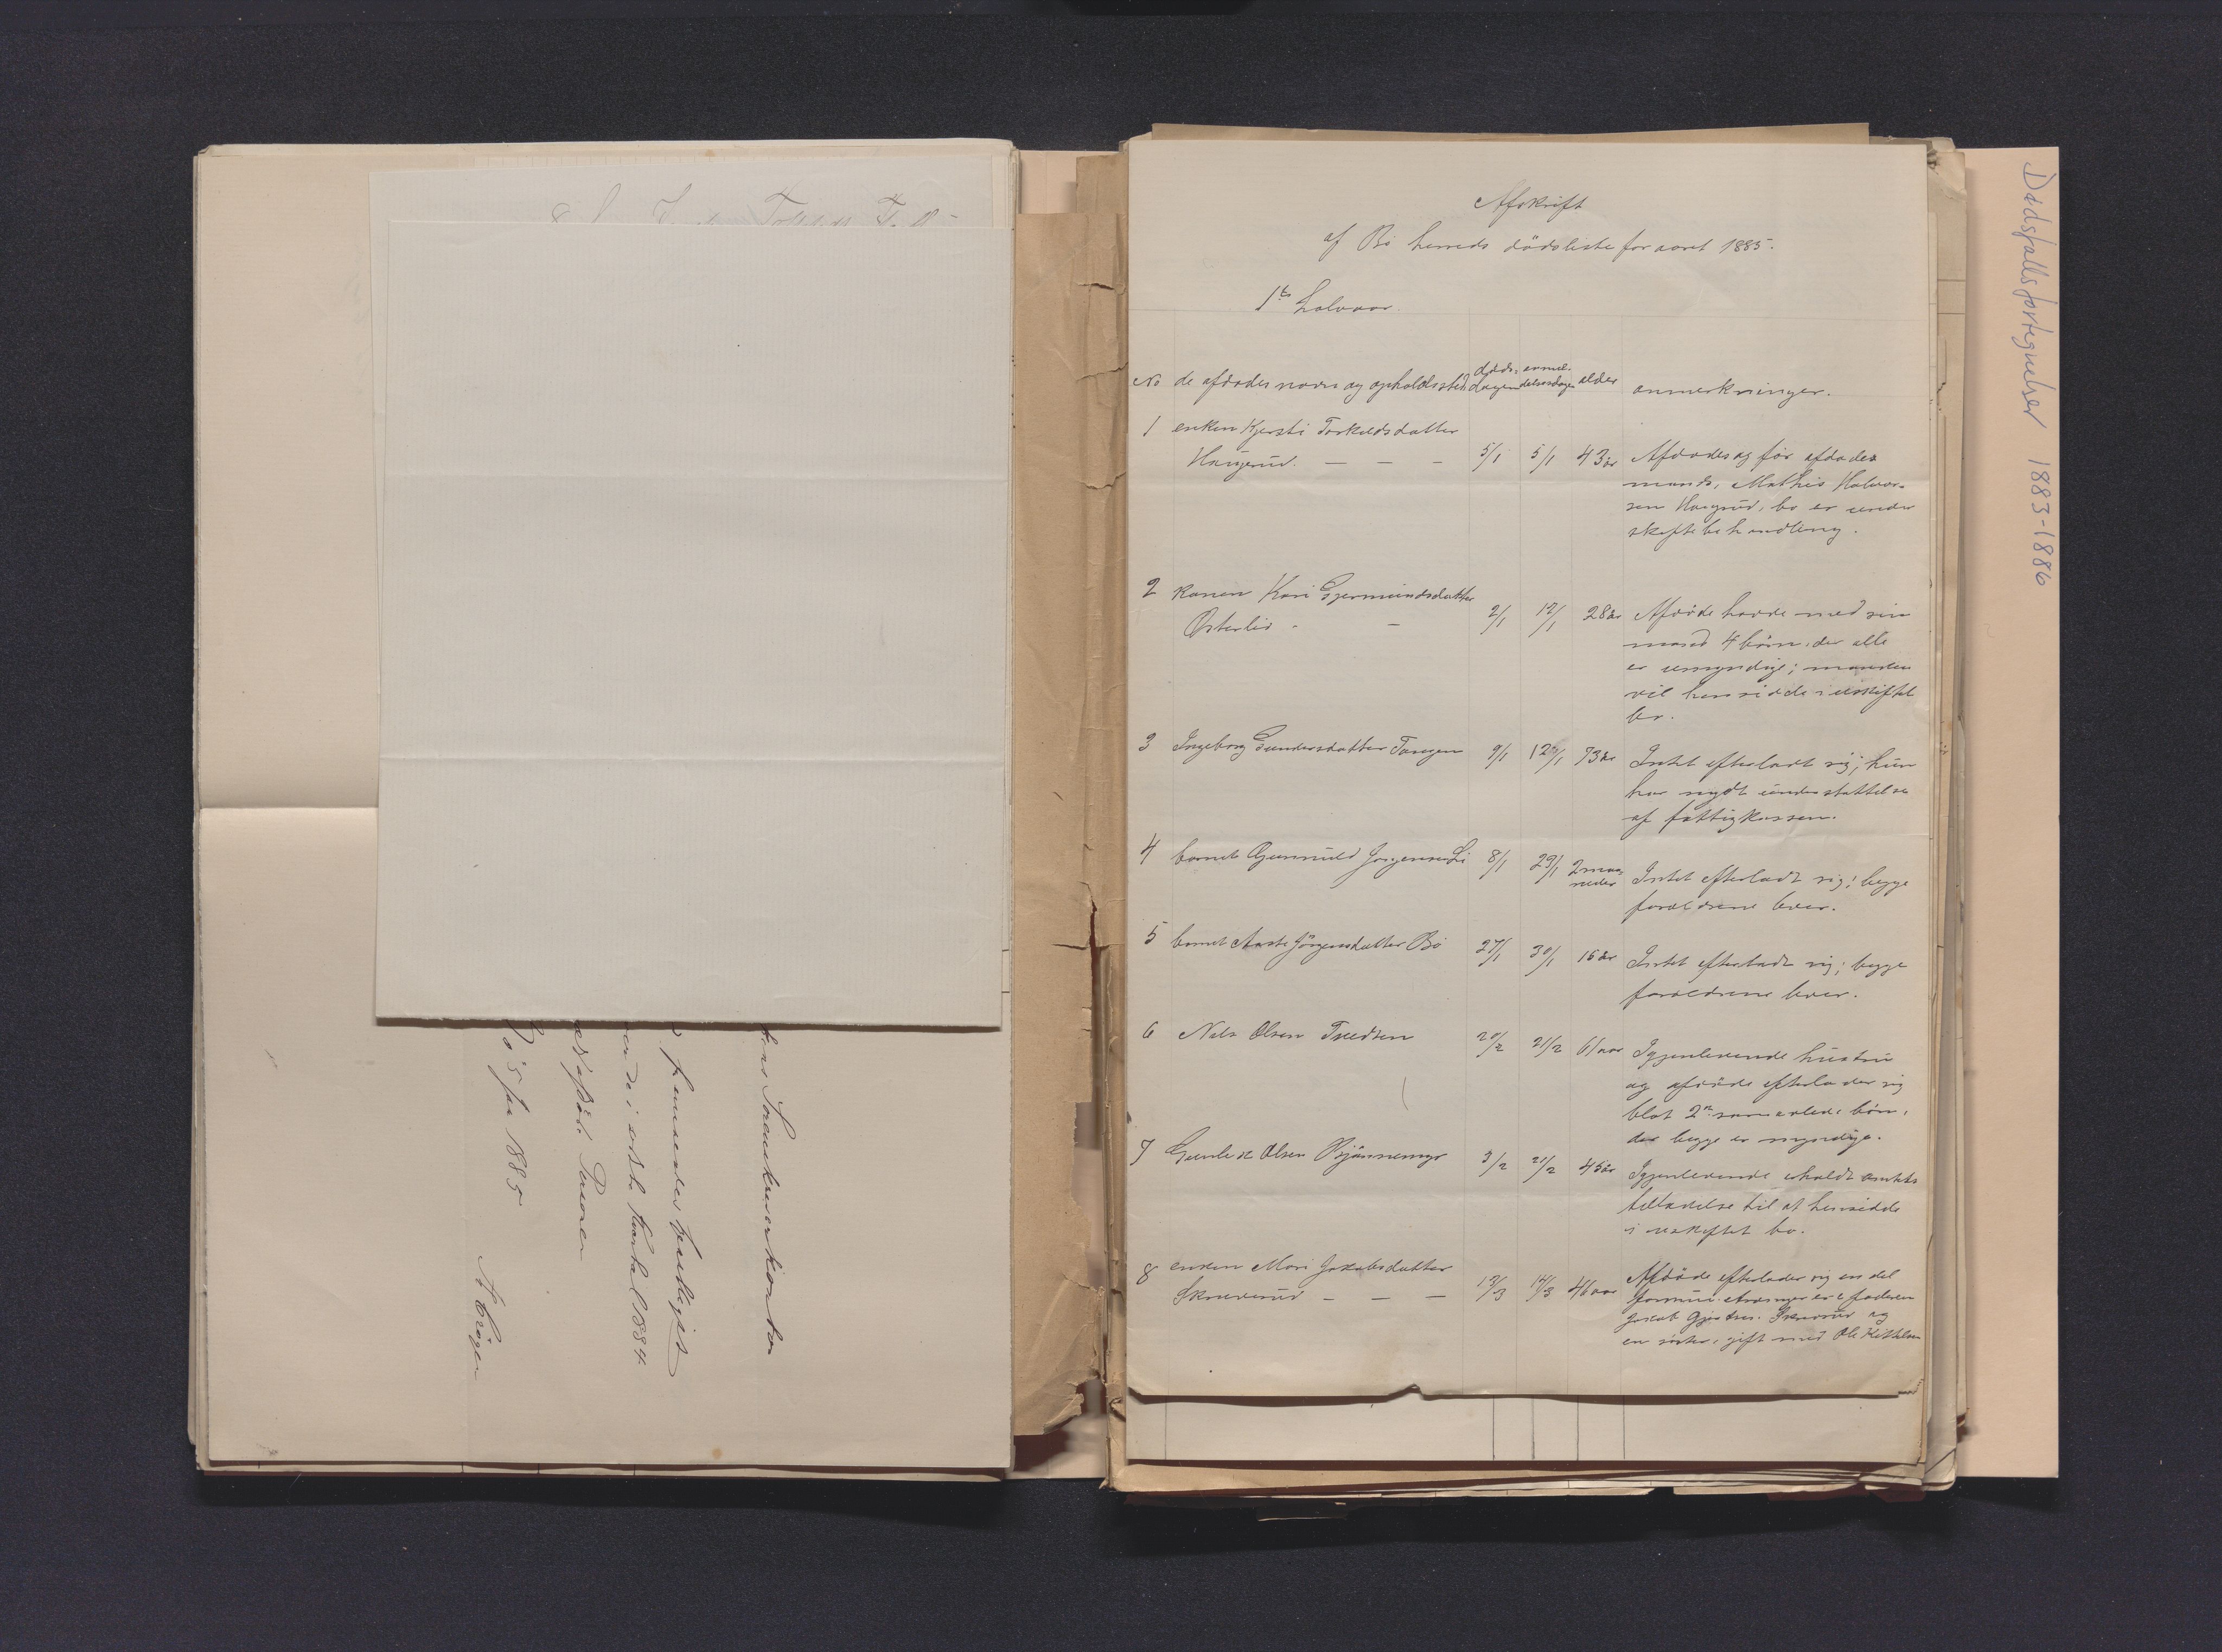 Afskrift
af Bö herreds dödsliste for aaret 1885.
1ste halvaar.
No de afdødes navn og opholdssted døds- dagen anmel- delsesdagen alder anmerkninger.
1 enken Kjersti Torkildsdatter
Haugerud. — — — 5/1 5/1 43 år Afdødes og før afdødes
mands, Mathis Halvor-
sen Haugrud, bo er under
skiftebehandling.
2 konen Kari Gjermundsdatter
Østerlid - - 2/1 12/1 28 år Afdöde havde med sin
mand 4 börn, der alle
er umyndige; manden
vil hensidde i uskiftet
bo.
3 Ingeborg Gundersdatter Tangen 9/1 12/1 73 år Intet efterladt sig; hun
har nydt understøttelse
af fattigkassen.
4 barnet Gunnuld Jørgensen Li 8/1 29/1 2 maa-
neder Intet efterladt sig; begge
forældrene lever.
5 barnet Aaste Jörgensdatter Bö 27/1 30/1 16 år Intet efterladt sig; begge
forældrene lever.
6 Nels Olsen Tveten 20/2 21/2 61 aar Igjenlevende hustru
og afdöde efterlader sig
blot 2 sammenavlede börn,
der begge er myndige.
7 Gunleik Olsen Bjønnemyr 3/2 21/2 45 år Igjenlevende erholdt amtets
tilladelse til at hensidde
i uskiftet bo.
8 enken Mari Jakobsdatter
Skreverud — — — 13/3 14/3 46 aar Afdöde efterlader sig en del
formue. Arvinger er faderen
Jakob Gjersen. Skreverud og
en söster, gift med Ole Kittelsen
Sorenskriverkontor
fremsendes herved
i første Kvartal 1884
Personer
Bö 5 jan 1885
Dødsfallsfortegnelser 1883-1886